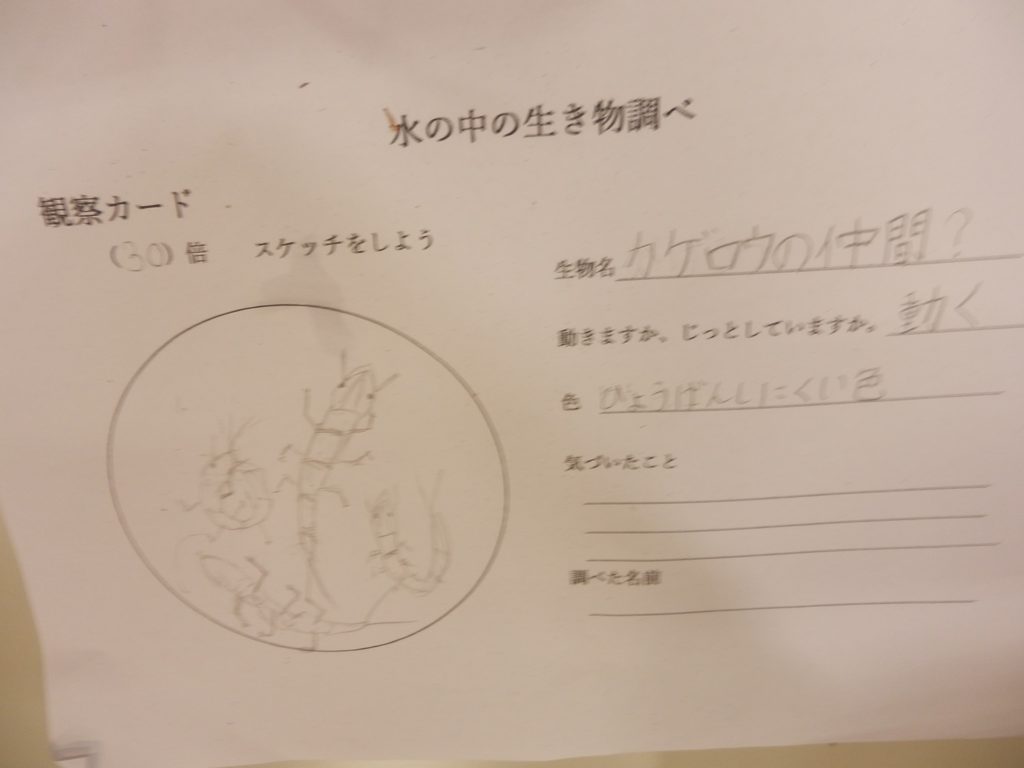 水の中の生き物調べ
観察カード
(30)倍 スケッチをしよう
生物名 カゲロウの仲間?
動きますか。じっとしていますか。 動く
色 ひょうげんしにくい色
気づいたこと
調べた名前